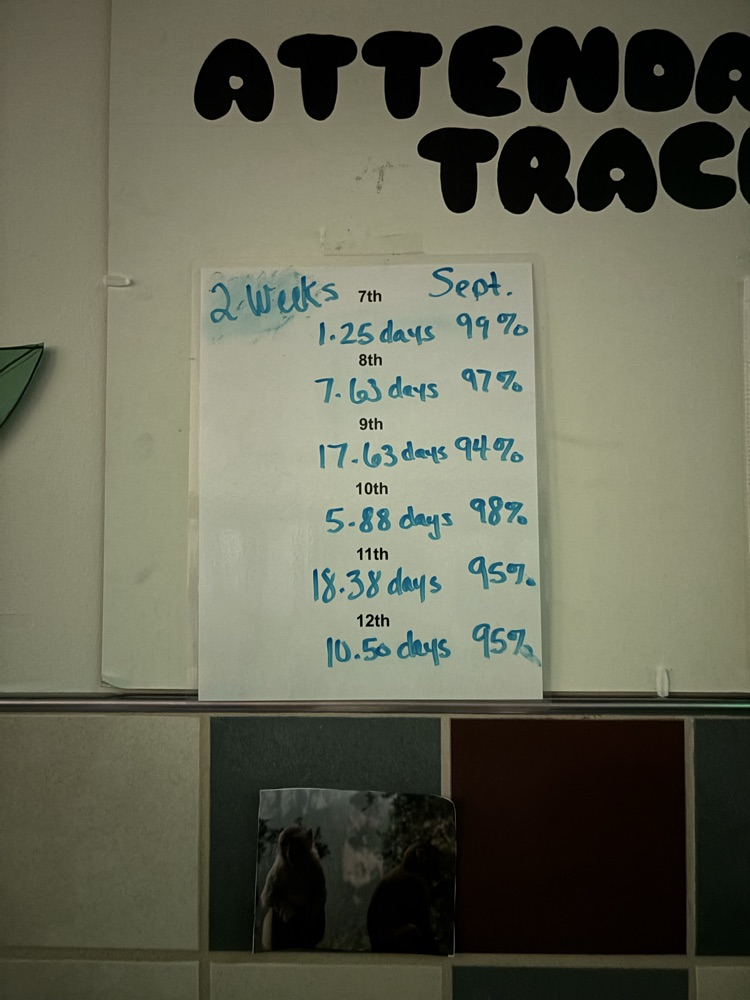 ATTENDA
TRAC
2 Weeks 7th Sept.
1.25 days 99%
8th
7.63 days 97%
9th
17.63 days 94%
10th
5.88 days 98%
11th
18.38 days 95%
12th
10.50 days 95%